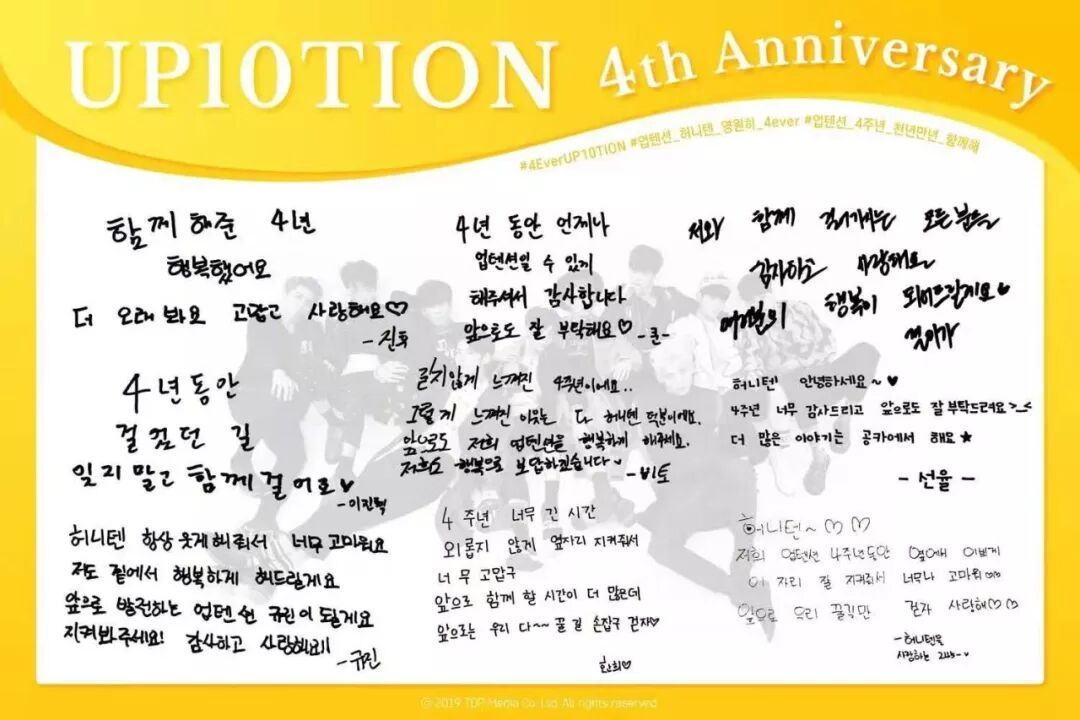 UP10TION 4th Anniversary
#4EverUP10TION #업텐션_허니텐_영원히_4ever #업텐션_4주년_천년만년_함께해
함께 해준 4년
행복했어요
더 오래 봐요 고맙고 사랑해요♡
-진후
4년 동안 언제나
업텐션일 수 있게
해주셔서 감사합니다
앞으로도 잘 부탁해요♡ -쿤-
저와 함께 걸어가는 모든 분들
감사하고 사랑해요
여러분의 행복이 되어드릴게요♥
4년동안
걸었던 길
잊지 말고 함께 걸어요♥
-이진혁
길지않게 느껴진 4주년이에요..
그렇게 느껴진 이유는 다 허니텐 덕분이에요.
앞으로도 저희 업텐션을 행복하게 해주세요.
저희도 행복으로 보답하겠습니다♥ -비토
허니텐 안녕하세요~♥
4주년 너무 감사드리고 앞으로도 잘 부탁드려요>_<
더 많은 이야기는 공카에서 해요★
- 선율 -
허니텐 항상 웃게해줘서 너무 고마워요
저도 곁에서 행복하게 해드릴게요
앞으로 발전하는 업텐션 규진이 될게요
지켜봐주세요! 감사하고 사랑해요!!
-규진
4주년 너무 긴 시간
외롭지 않게 옆자리 지켜줘서
너무 고맙구
앞으로 함께 할 시간이 더 많은데
앞으로는 우리 다~~ 꽃길 손잡구 걷자♥
환희♡
허니텐~♡♡
저희 업텐션 4주년동안 옆에서 이쁘게
이 자리 잘 지켜줘서 너무나 고마워♡♡
앞으로 우리 꽃길만 걷자 사랑해♡♡
-허니텐을
사랑하는
© 2019 TOP Media Co. Ltd. All rights reserved